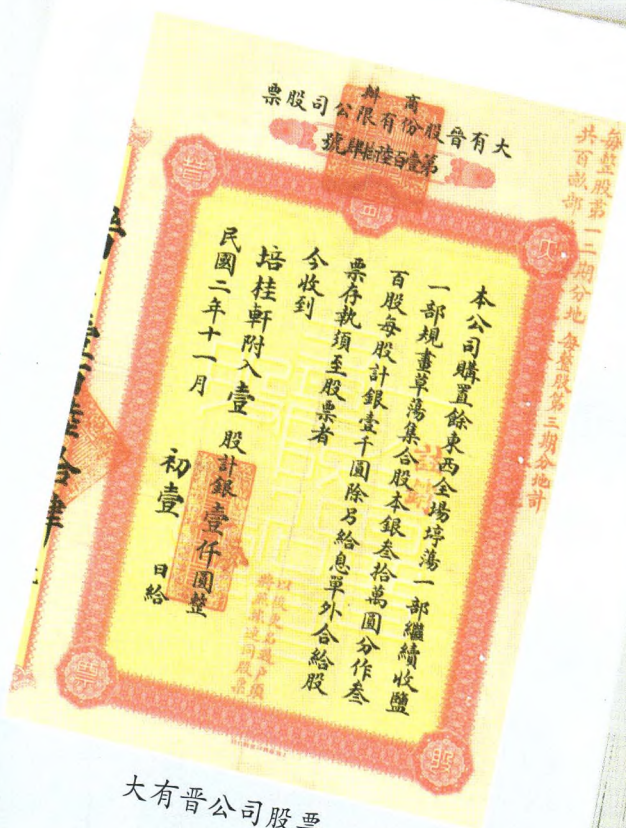 商辦
大有晉股份有限公司股票
第壹百陸拾肆號
每整股第一二期分地
每整股第三期分地計
本公司購置餘東西全場埻蕩一部繼續收鹽
一部規畫草蕩集合股本銀叁拾萬圓分作叁
百股每股計銀壹千圓除另給息單外合給股
票存執須至股票者
今收到
培桂軒附入壹股計銀壹仟圓整
民國二年十一月初壹日給
大
晉
司
票
股
大有晋公司股票